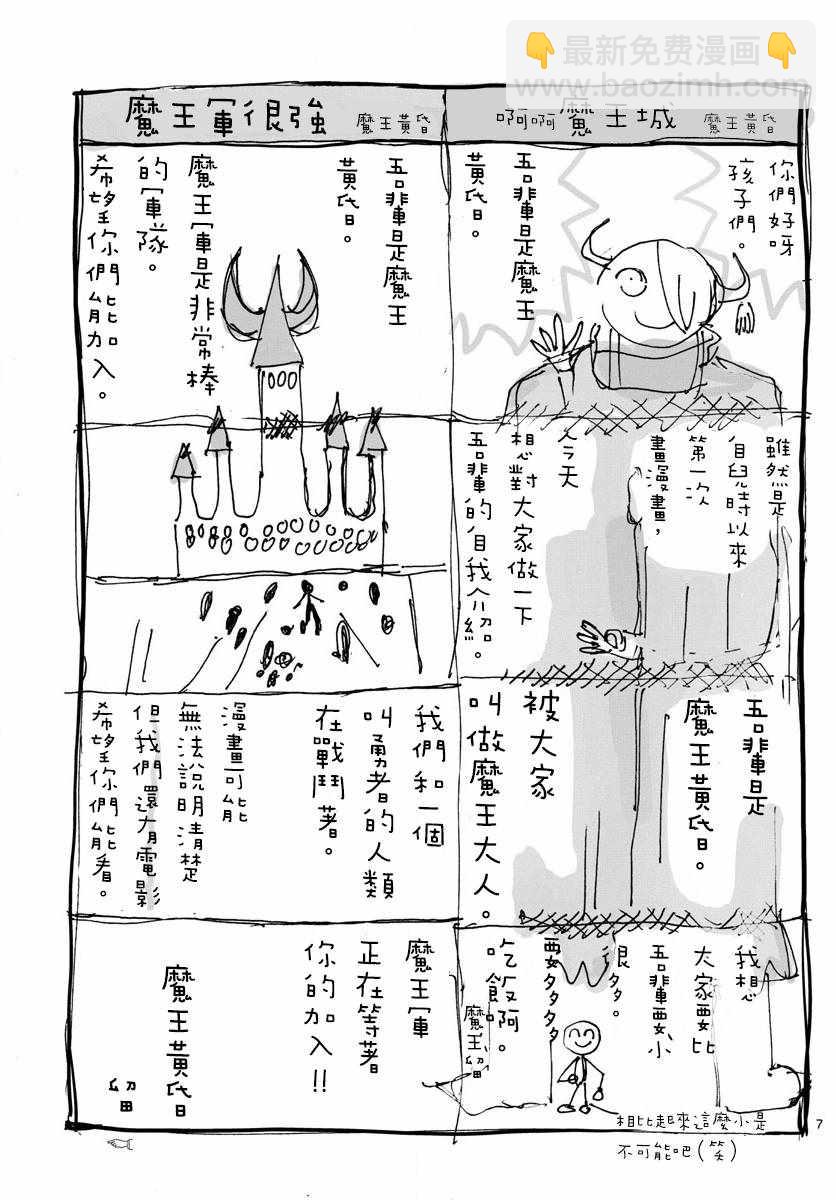 👇最新免费漫画👇
www.baozimh.com
啊啊魔王城
魔王黃昏
你們好呀
孩子們。
吾輩是魔王
黃昏。
雖然是
自兒時以來
第一次
畫漫畫，
今天
想對大家做一下
吾輩的自我介紹。
吾輩是
魔王黃昏。
被大家
叫做魔王大人。
我想
大家要比
吾輩要小
很多。
要多多多多
吃飯啊。
魔王留
相比起來這麼小是
不可能吧(笑)
魔王軍很強
魔王黃昏
吾輩是魔王
黃昏。
魔王軍是非常棒
的軍隊。
希望你們能加入。
我們和一個
叫勇者的人類
在戰鬥著。
漫畫可能
無法說明清楚
但我們還有電影
希望你們能看。
魔王軍
正在等著
你的加入!!
魔王黃昏
留
7